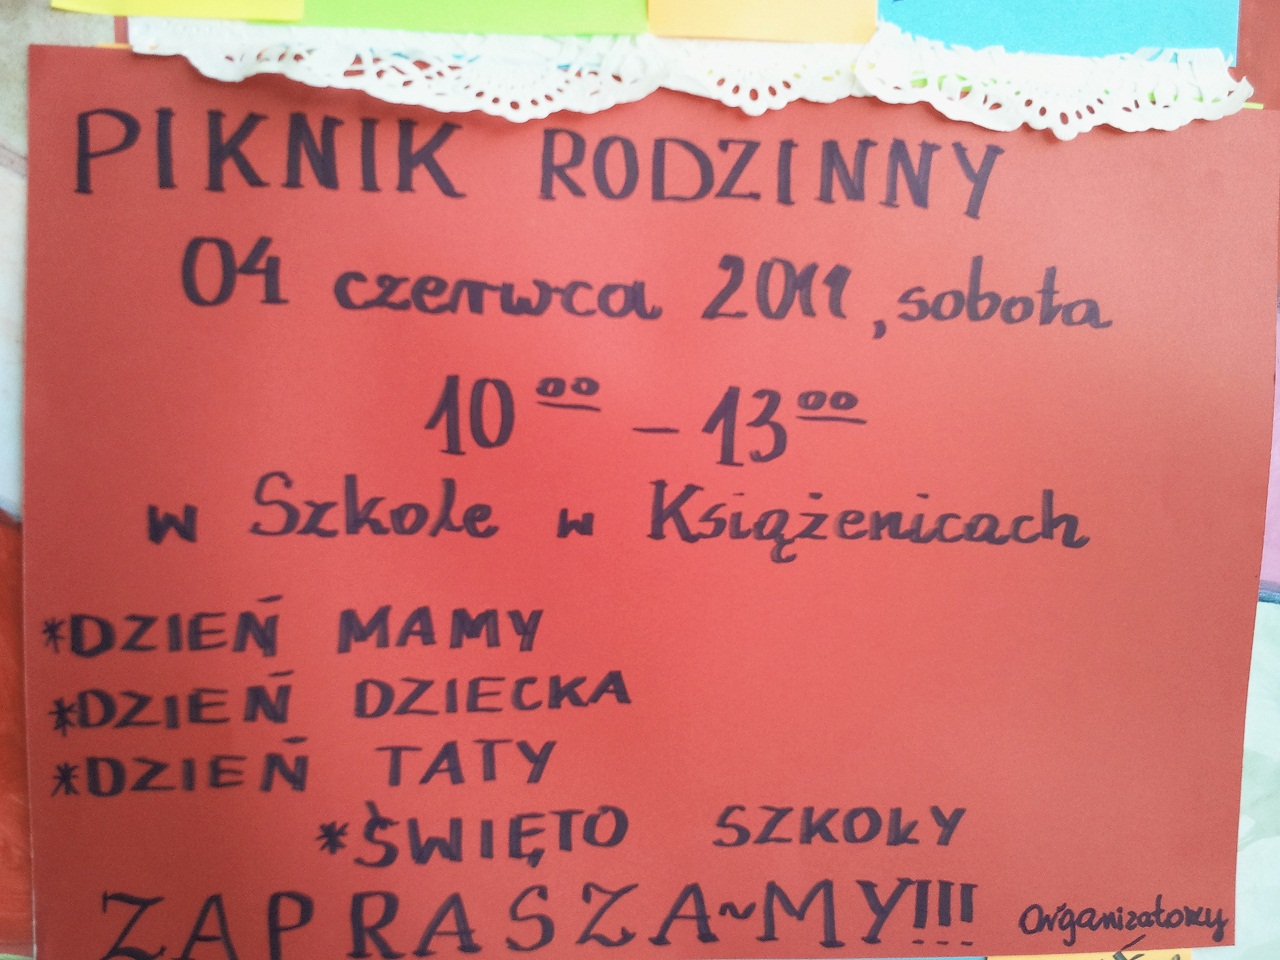 PIKNIK RODZINNY
04 czerwca 2011, sobota
10⁰⁰ – 13⁰⁰
w Szkole w Książenicach
*DZIEŃ MAMY
*DZIEŃ DZIECKA
*DZIEŃ TATY
*ŚWIĘTO SZKOŁY
ZAPRASZA~MY!!!
Organizatorzy